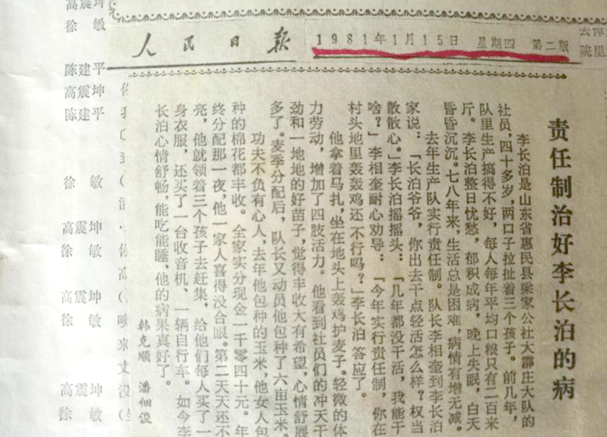 人民日报 1981年1月15日 星期四 第二版
责任制治好李长泊的病
李长泊是山东省惠民县梁家公社大庄大队的
社员，四十多岁，两口子拉扯着三个孩子。前几年，
队里生产搞得不好，每人每年平均口粮只有二百来
斤。李长泊整日忧愁，郁积成病，晚上失眠，白天
昏昏沉沉。七八年来，生活总是困难，病情有增无减。
去年生产队实行责任制。队长李相奎到李长泊
家说：“长泊爷爷，你出去干点轻活怎么样？权当
散散心。”李长泊摇摇头：“几年都没干活，我能干
啥？”李相奎耐心劝导：“今年实行责任制，你在
村头地里轰轰鸡还不行吗？”李长泊答应了。
他拿着马扎，坐在地头上轰鸡护麦子。轻微的体
力劳动，增加了四肢活力。他看到社员们的冲天干
劲和一地地的好苗子，觉得丰收大有希望，心情舒展
多了。麦季分配后，队长又动员他包种了六亩玉米。
功夫不负有心人，去年他包种的玉米，他女人包
种的棉花都丰收。全家实分现金一千零四十元。年
终分配那一夜，他一家人喜得没合眼。第二天天还不
亮，他就领着三个孩子去赶集，给他们每人买了一
身衣服，还买了一台收音机、一辆自行车。如今李
长泊心情舒畅，能吃能睡，他的病果真好了。
韩克顺 潘佃俊
高震坤
徐敏
陈建平
高震坤
陈建平
徐敏
高震坤
徐敏
高震坤
徐敏
高震坤
徐敏